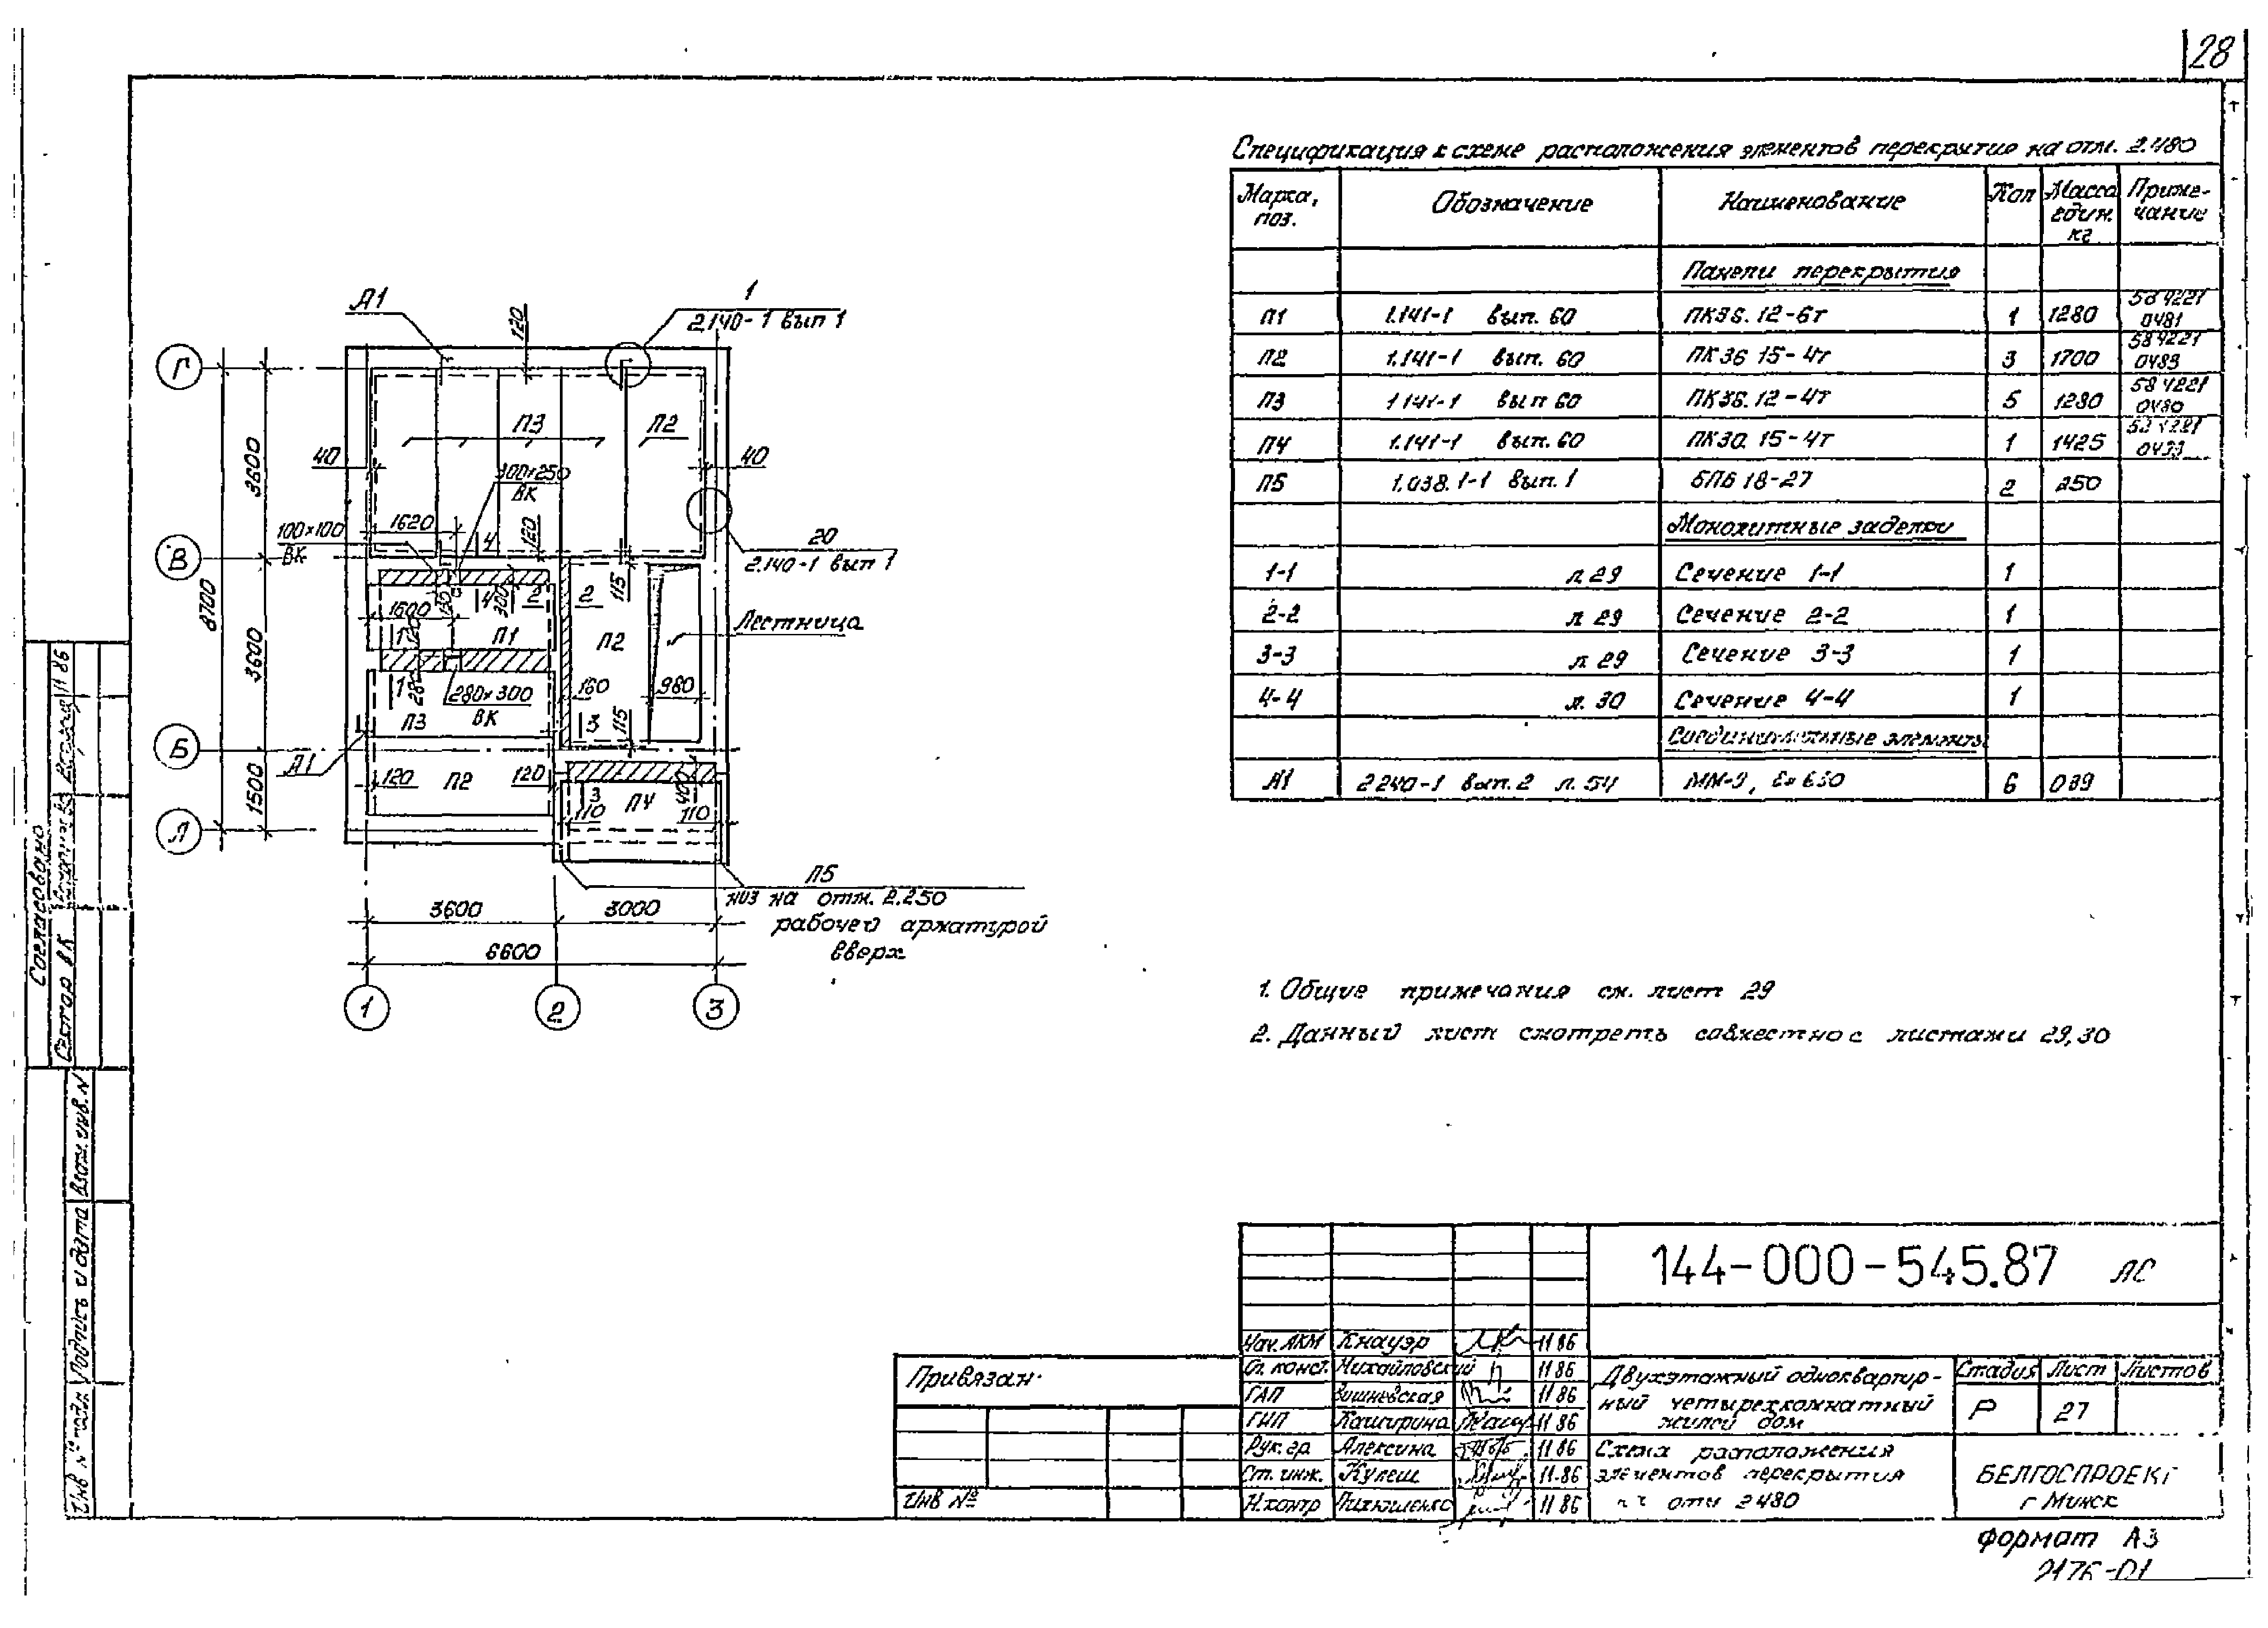 28
Спецификация к схеме расположения элементов перекрытие на отм. 2.480
Марка, поз. Обозначение Наименование Кол Масса един. кг Приме-чание
Панели перекрытия
П1 1.141-1 вып. 60 ПК36.12-6т 1 1280 58 4221 0481
П2 1.141-1 вып. 60 ПК36 15-4т 3 1700 58 4221 0483
П3 1.141-1 вып 60 ПК36.12-4т 5 1280 58 4221 0480
П4 1.141-1 вып. 60 ПК30.15-4т 1 1425
П5 1.038.1-1 вып. 1 5ПБ 18-27 2 250
Монолитные заделки
1-1 л 29 Сечение 1-1 1
2-2 л 29 Сечение 2-2 1
3-3 л 29 Сечение 3-3 1
4-4 л. 30 Сечение 4-4 1
Соединительные элементы
А1 2 240-1 вып. 2 л. 54 ММ-9, 6 039
А1
1
2.140-1 вып 1
120
Г
П3
П2
40
40
3600
300×250
ВК
100×100
ВК
1620
4
120
20
2.140-1 вып 1
В
8700
115
1600
130
4
300
2
2
Лестница
1
120
П1
П2
3600
1
280
280×300
ВК
160
980
П3
3
115
Б
А1
120
П2
120
400
1500
3
П4
110
110
Д
П5
низ на отм. 2.250
рабочей арматурой
вверх
3600
3000
6600
1
2
3
1. Общие примечания см. лист 29
2. Данный лист смотреть совместно с листами 29,30
Согласовано
Сектор ВК
11 86
Взам. инв. N
Подпись и дата
Инв № подл.
144-000-545.87 АС
Нач. АКМ Кнауэр 11 86
Гл. конст. Михайловский 11 86
ГАП Вишневская 11 86
ГИП Каширина 11 86
Рук. гр Алексина 11 86
Ст. инж. Кулеш 11.86
Н.контр 11 86
Привязан
Инв №
Двухэтажный одноквартир-
ный четырехкомнатный
жилой дом
Стадия Лист Листов
Р 27
Схема расположения
элементов перекрытия
на отм 2 480
БЕЛГОСПРОЕКТ
г Минск
Формат А3
2176-01